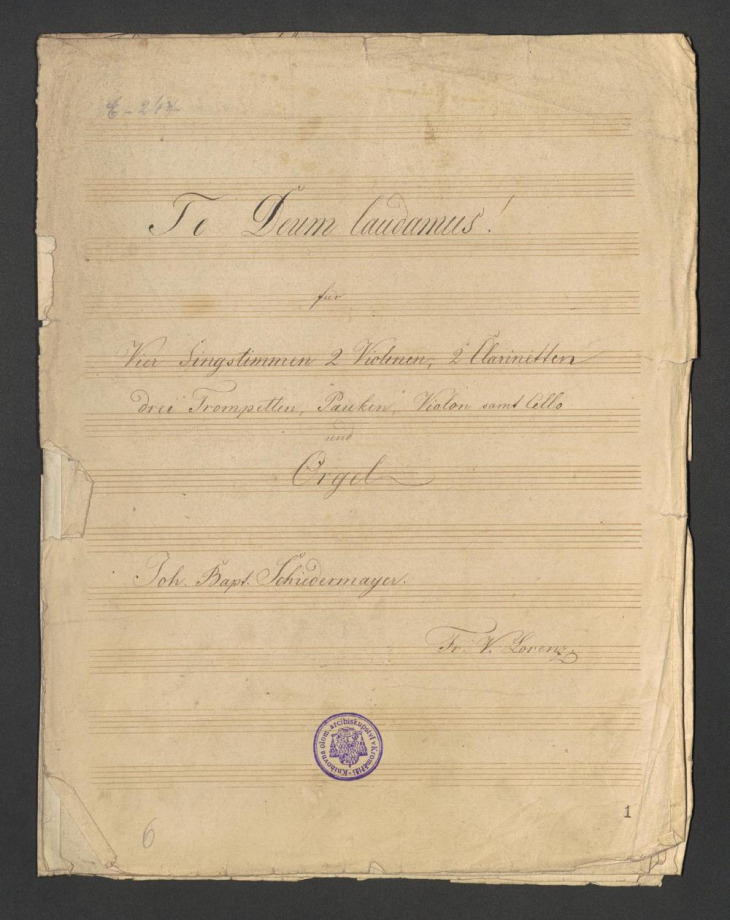 Te Deum laudamus!
für
Vier Singstimmen 2 Violinen, 2 Clarinetten
drei Trompetten, Pauken, Violon samt Cello
und
Orgel
Joh. Bapt. Schiedermayer.
Fr. V. Lorenz
Knihovna olom. arcibiskupství v Kroměříži
1
6